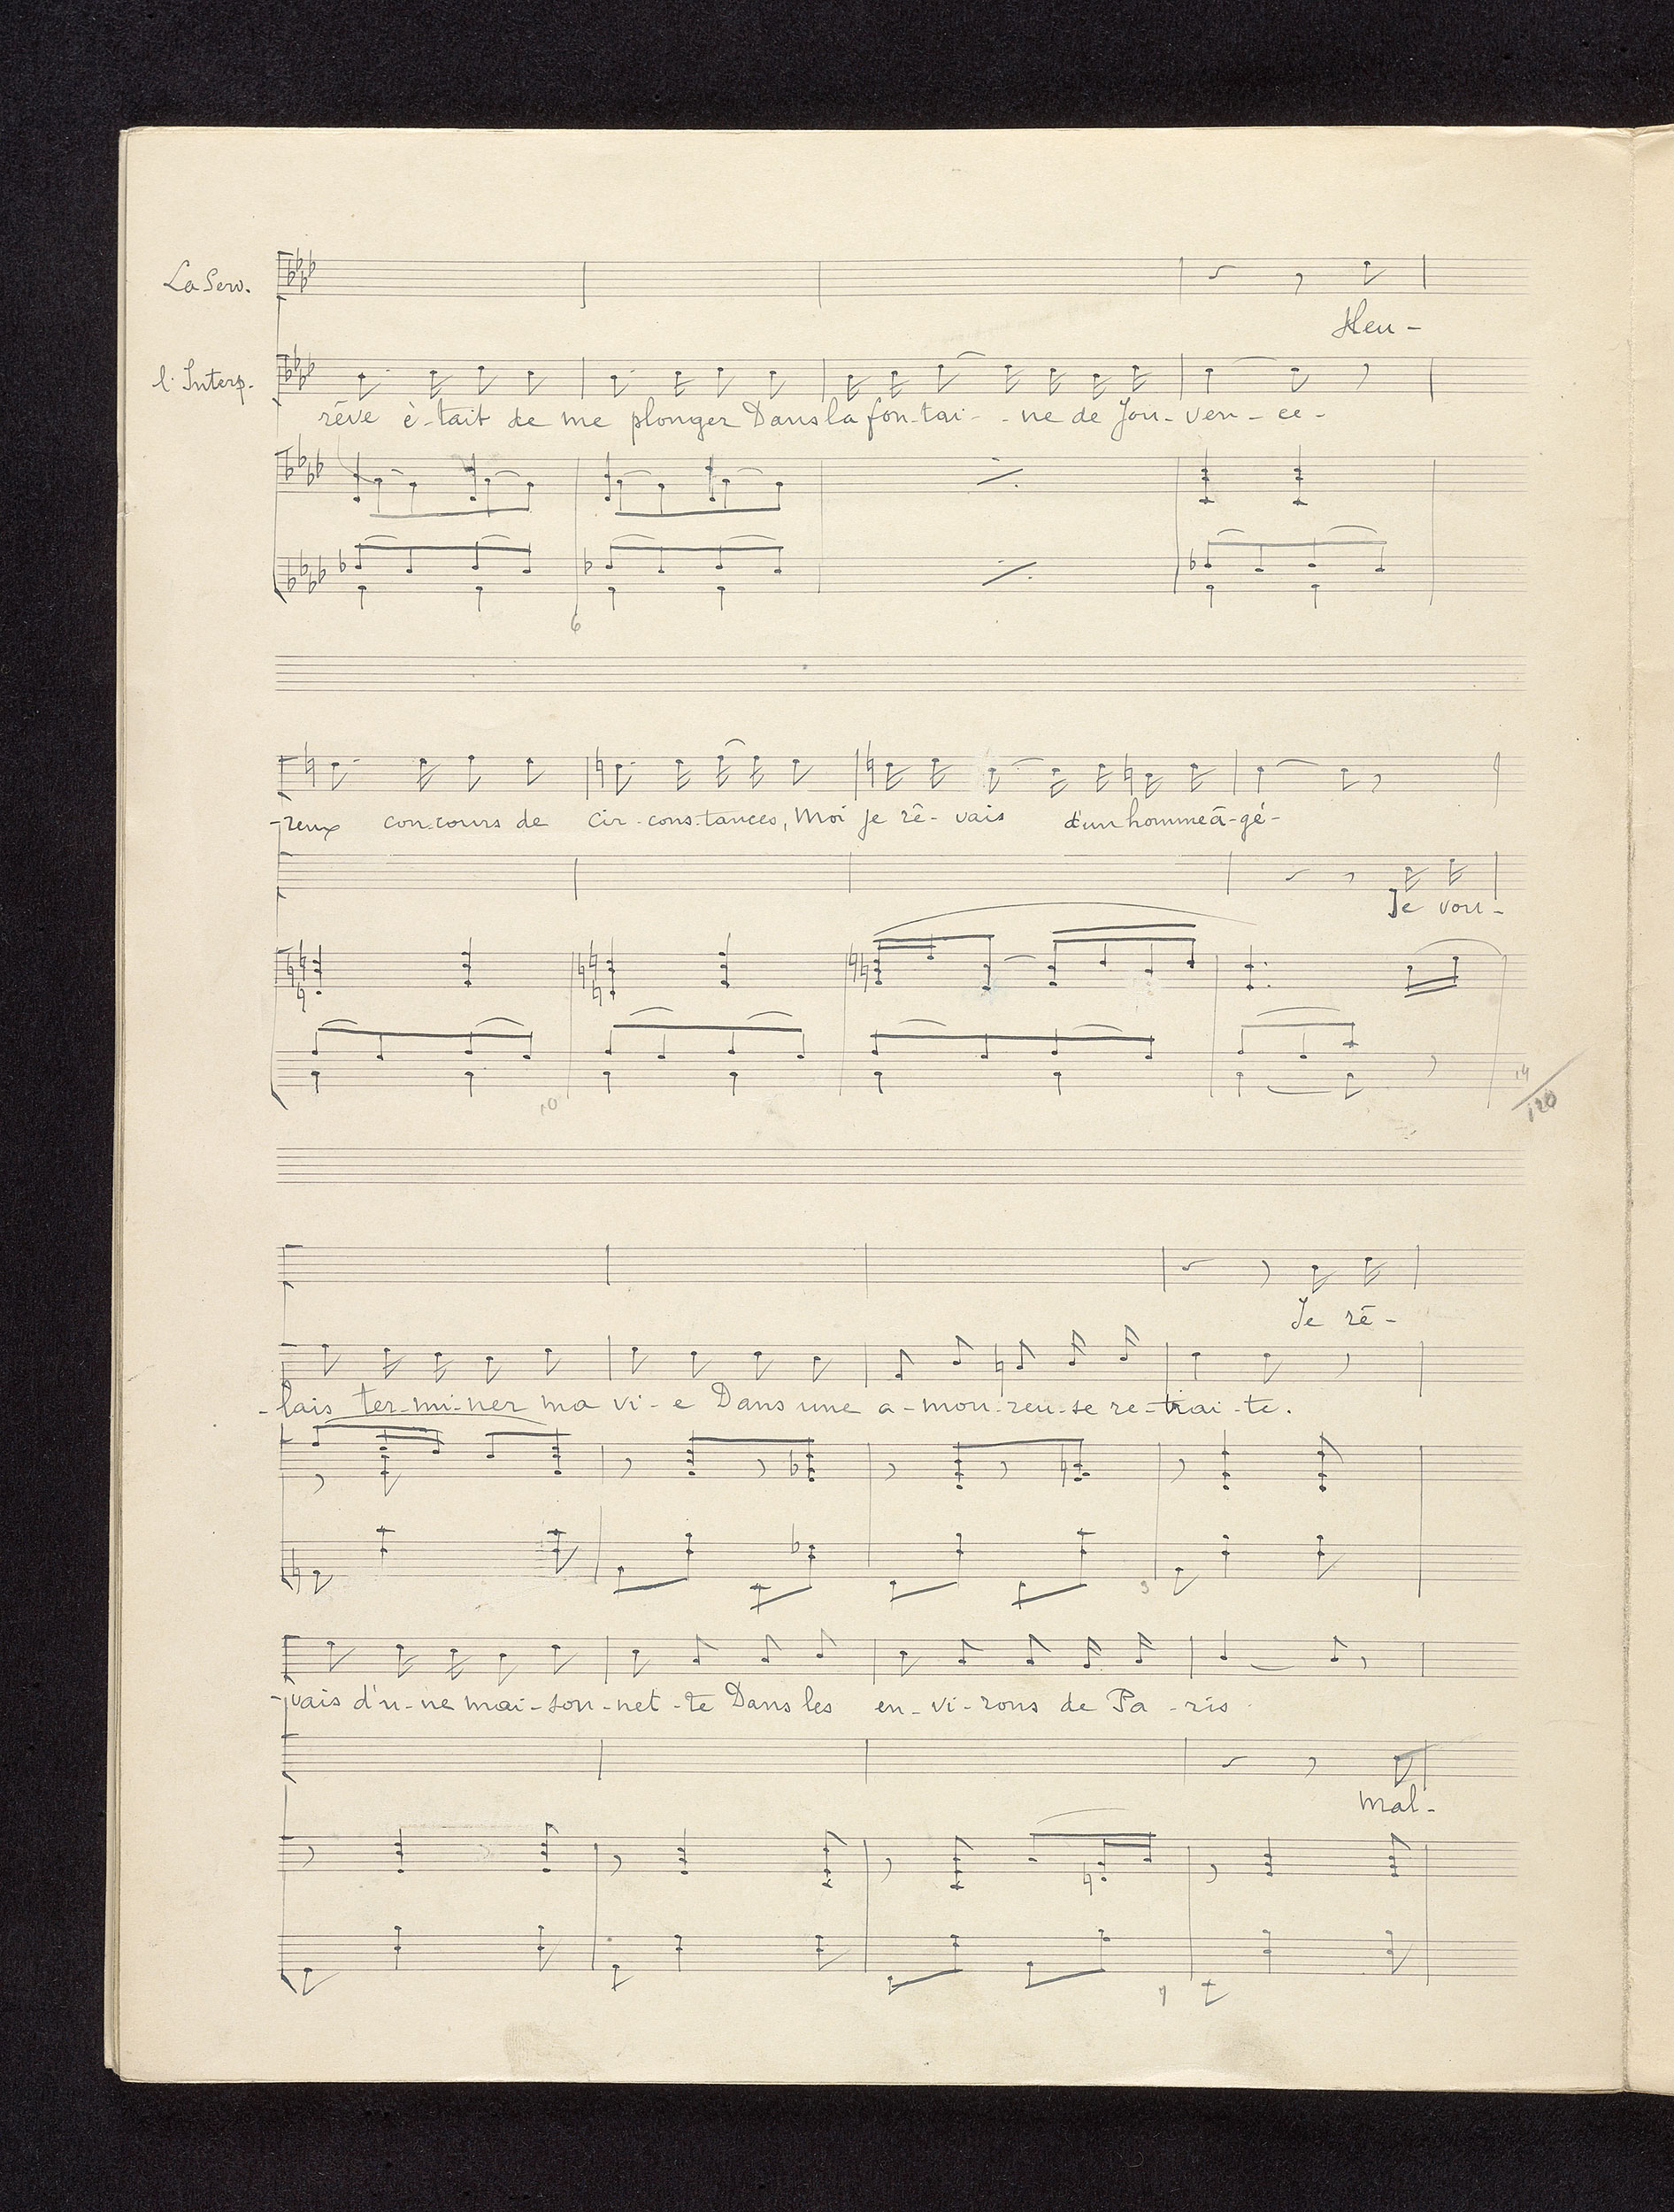 La Serv.
Heu-
l'Interp.
rêve é-tait de me plonger Dans la fon-tai- -ne de Jou-ven-ce-
6
-reux con-cours de cir-cons-tances, Moi je rê-vais d'un homme â-gé-
Je vou-
10
14
120
Je rê-
-lais ter-mi-ner ma vi-e Dans une a-mou-reu-se re-trai-te.
3
-vais d'u-ne mai-son-net-te Dans les en-vi-rons de Pa-ris
Mal-
7